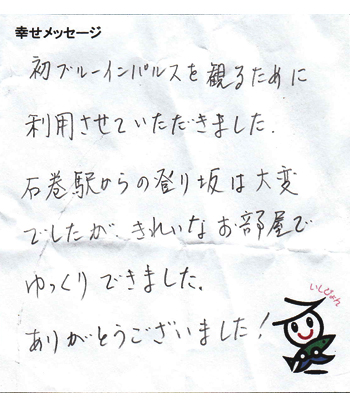 幸せメッセージ
初ブルーインパルスを観るために
利用させていただきました.
石巻駅からの登り坂は大変
でしたが、きれいなお部屋で
ゆっくりできました.
ありがとうございました!
いしぴょん